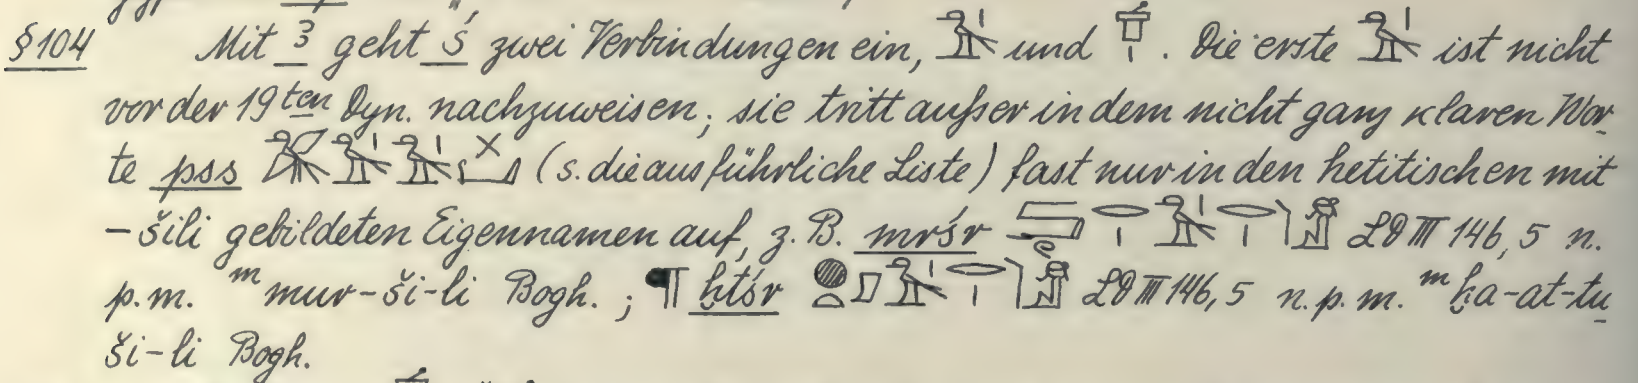 § 104 Mit ꜣ geht ś zwei Verbindungen ein, und . Die erste ist nicht
vor der 19ten Dyn. nachzuweisen; sie tritt außer in dem nicht ganz klaren Wor-
te pss (s. die ausführliche Liste) fast nur in den hetitischen mit
-šili gebildeten Eigennamen auf, z. B. mrśr LD III 146, 5 n.
p. m. ᵐmur-ši-li Bogh. ; ¶ ḫtśr LD III 146, 5 n. p. m. ᵐḫa-at-tu
ši-li Bogh.